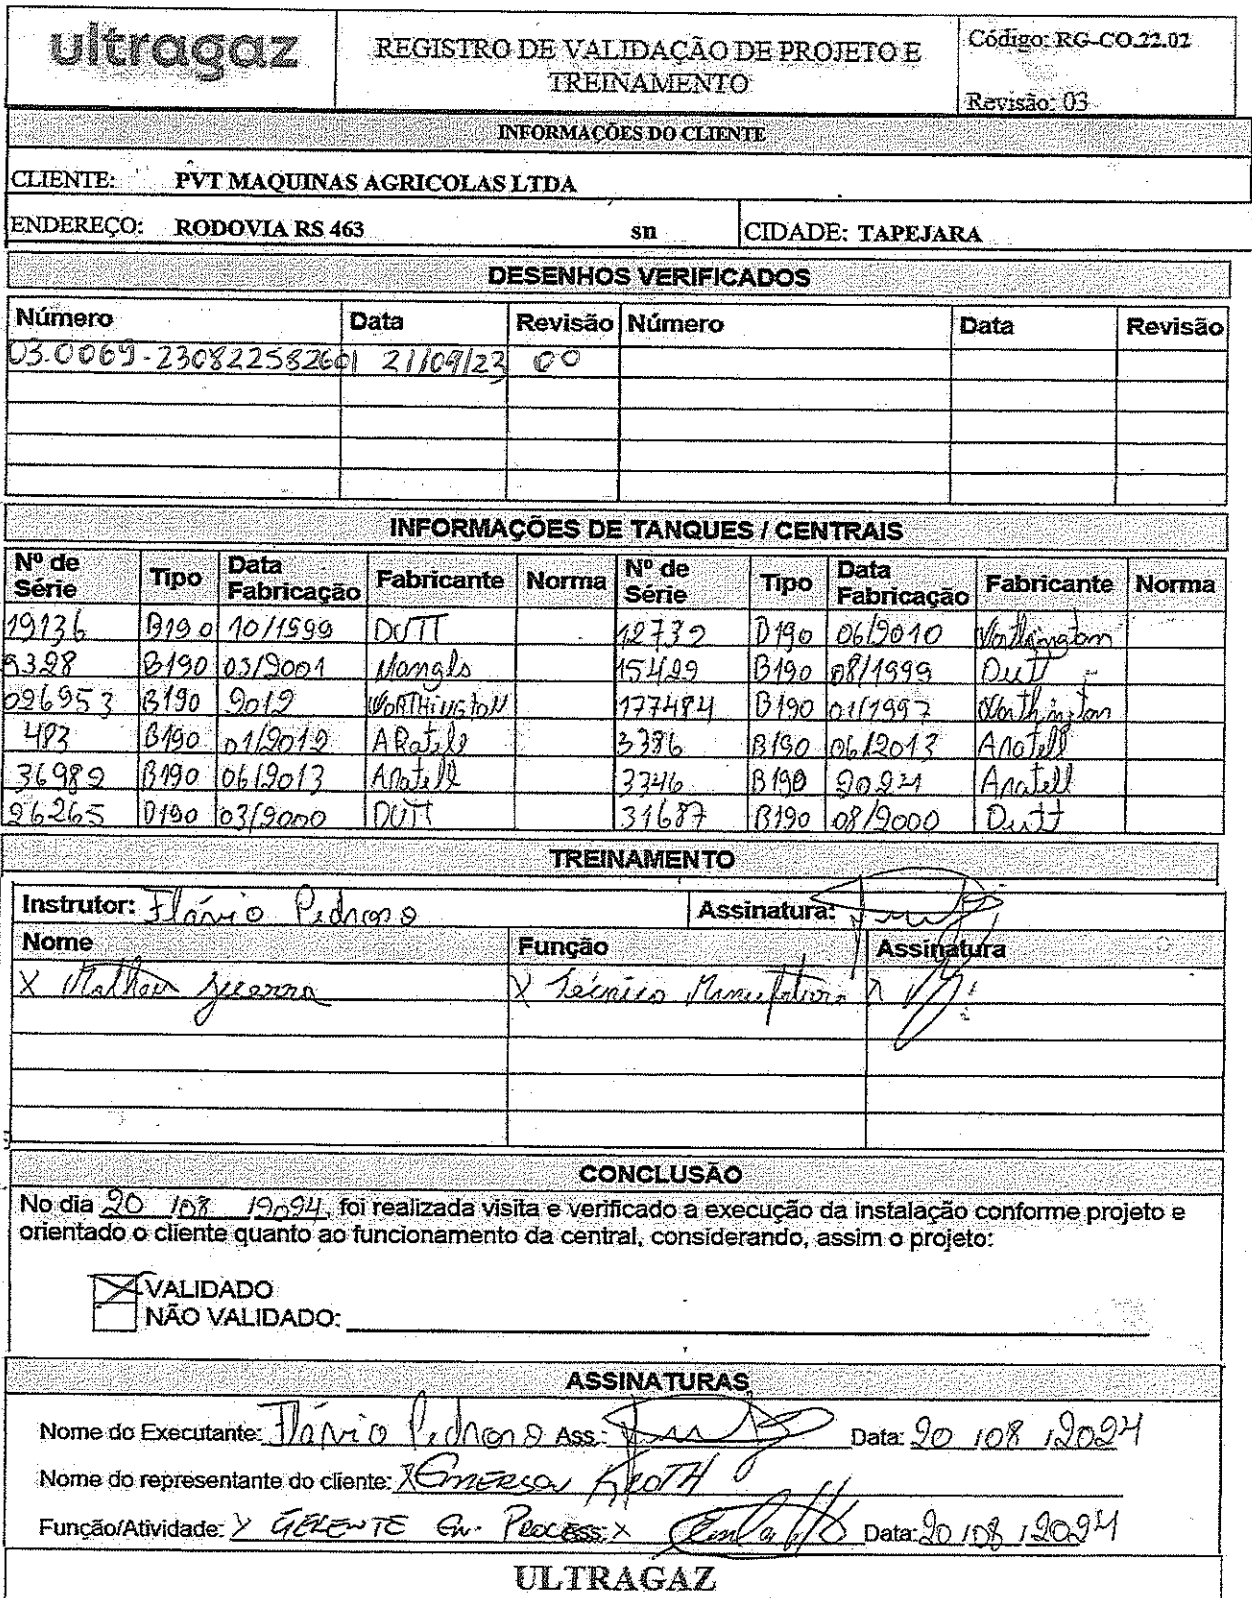 ultragaz
REGISTRO DE VALIDAÇÃO DE PROJETO E
TREINAMENTO
Código: RG-CO.22.02
Revisão: 03
INFORMAÇÕES DO CLIENTE
CLIENTE: PVT MAQUINAS AGRICOLAS LTDA
ENDEREÇO: RODOVIA RS 463 sn CIDADE: TAPEJARA
DESENHOS VERIFICADOS
Número Data Revisão Número Data Revisão
03.0069-230822582601 21/09/23 00
INFORMAÇÕES DE TANQUES / CENTRAIS
Nº de Série Tipo Data Fabricação Fabricante Norma Nº de Série Tipo Data Fabricação Fabricante Norma
19136 B190 10/1999 DUTT 12732 B190 06/2010 Worthington
8328 B190 03/2001 Mangls 15429 B190 08/1999 Dutt
026953 B190 2012 WORTHINGTON 177484 B190 01/1997 Worthington
483 B190 01/2012 ARatell 3386 B190 06/2013 Aratell
36982 B190 06/2013 Aratell 3346 B190 2024 Aratell
26265 B190 03/2000 DUTT 31687 B190 08/2000 Dutt
TREINAMENTO
Instrutor: Flávio Pedroso Assinatura:
Nome Função Assinatura
X X Técnico Manufatura X
CONCLUSÃO
No dia 20 /08 /2024, foi realizada visita e verificado a execução da instalação conforme projeto e
orientado o cliente quanto ao funcionamento da central, considerando, assim o projeto:
VALIDADO
NÃO VALIDADO:
ASSINATURAS
Nome do Executante: Flávio Pedroso Ass.: Data: 20 /08 /2024
Nome do representante do cliente: X EMERSON KROTH
Função/Atividade: X GERENTE En. PROCESS X Data: 20 /08 /2024
ULTRAGAZ